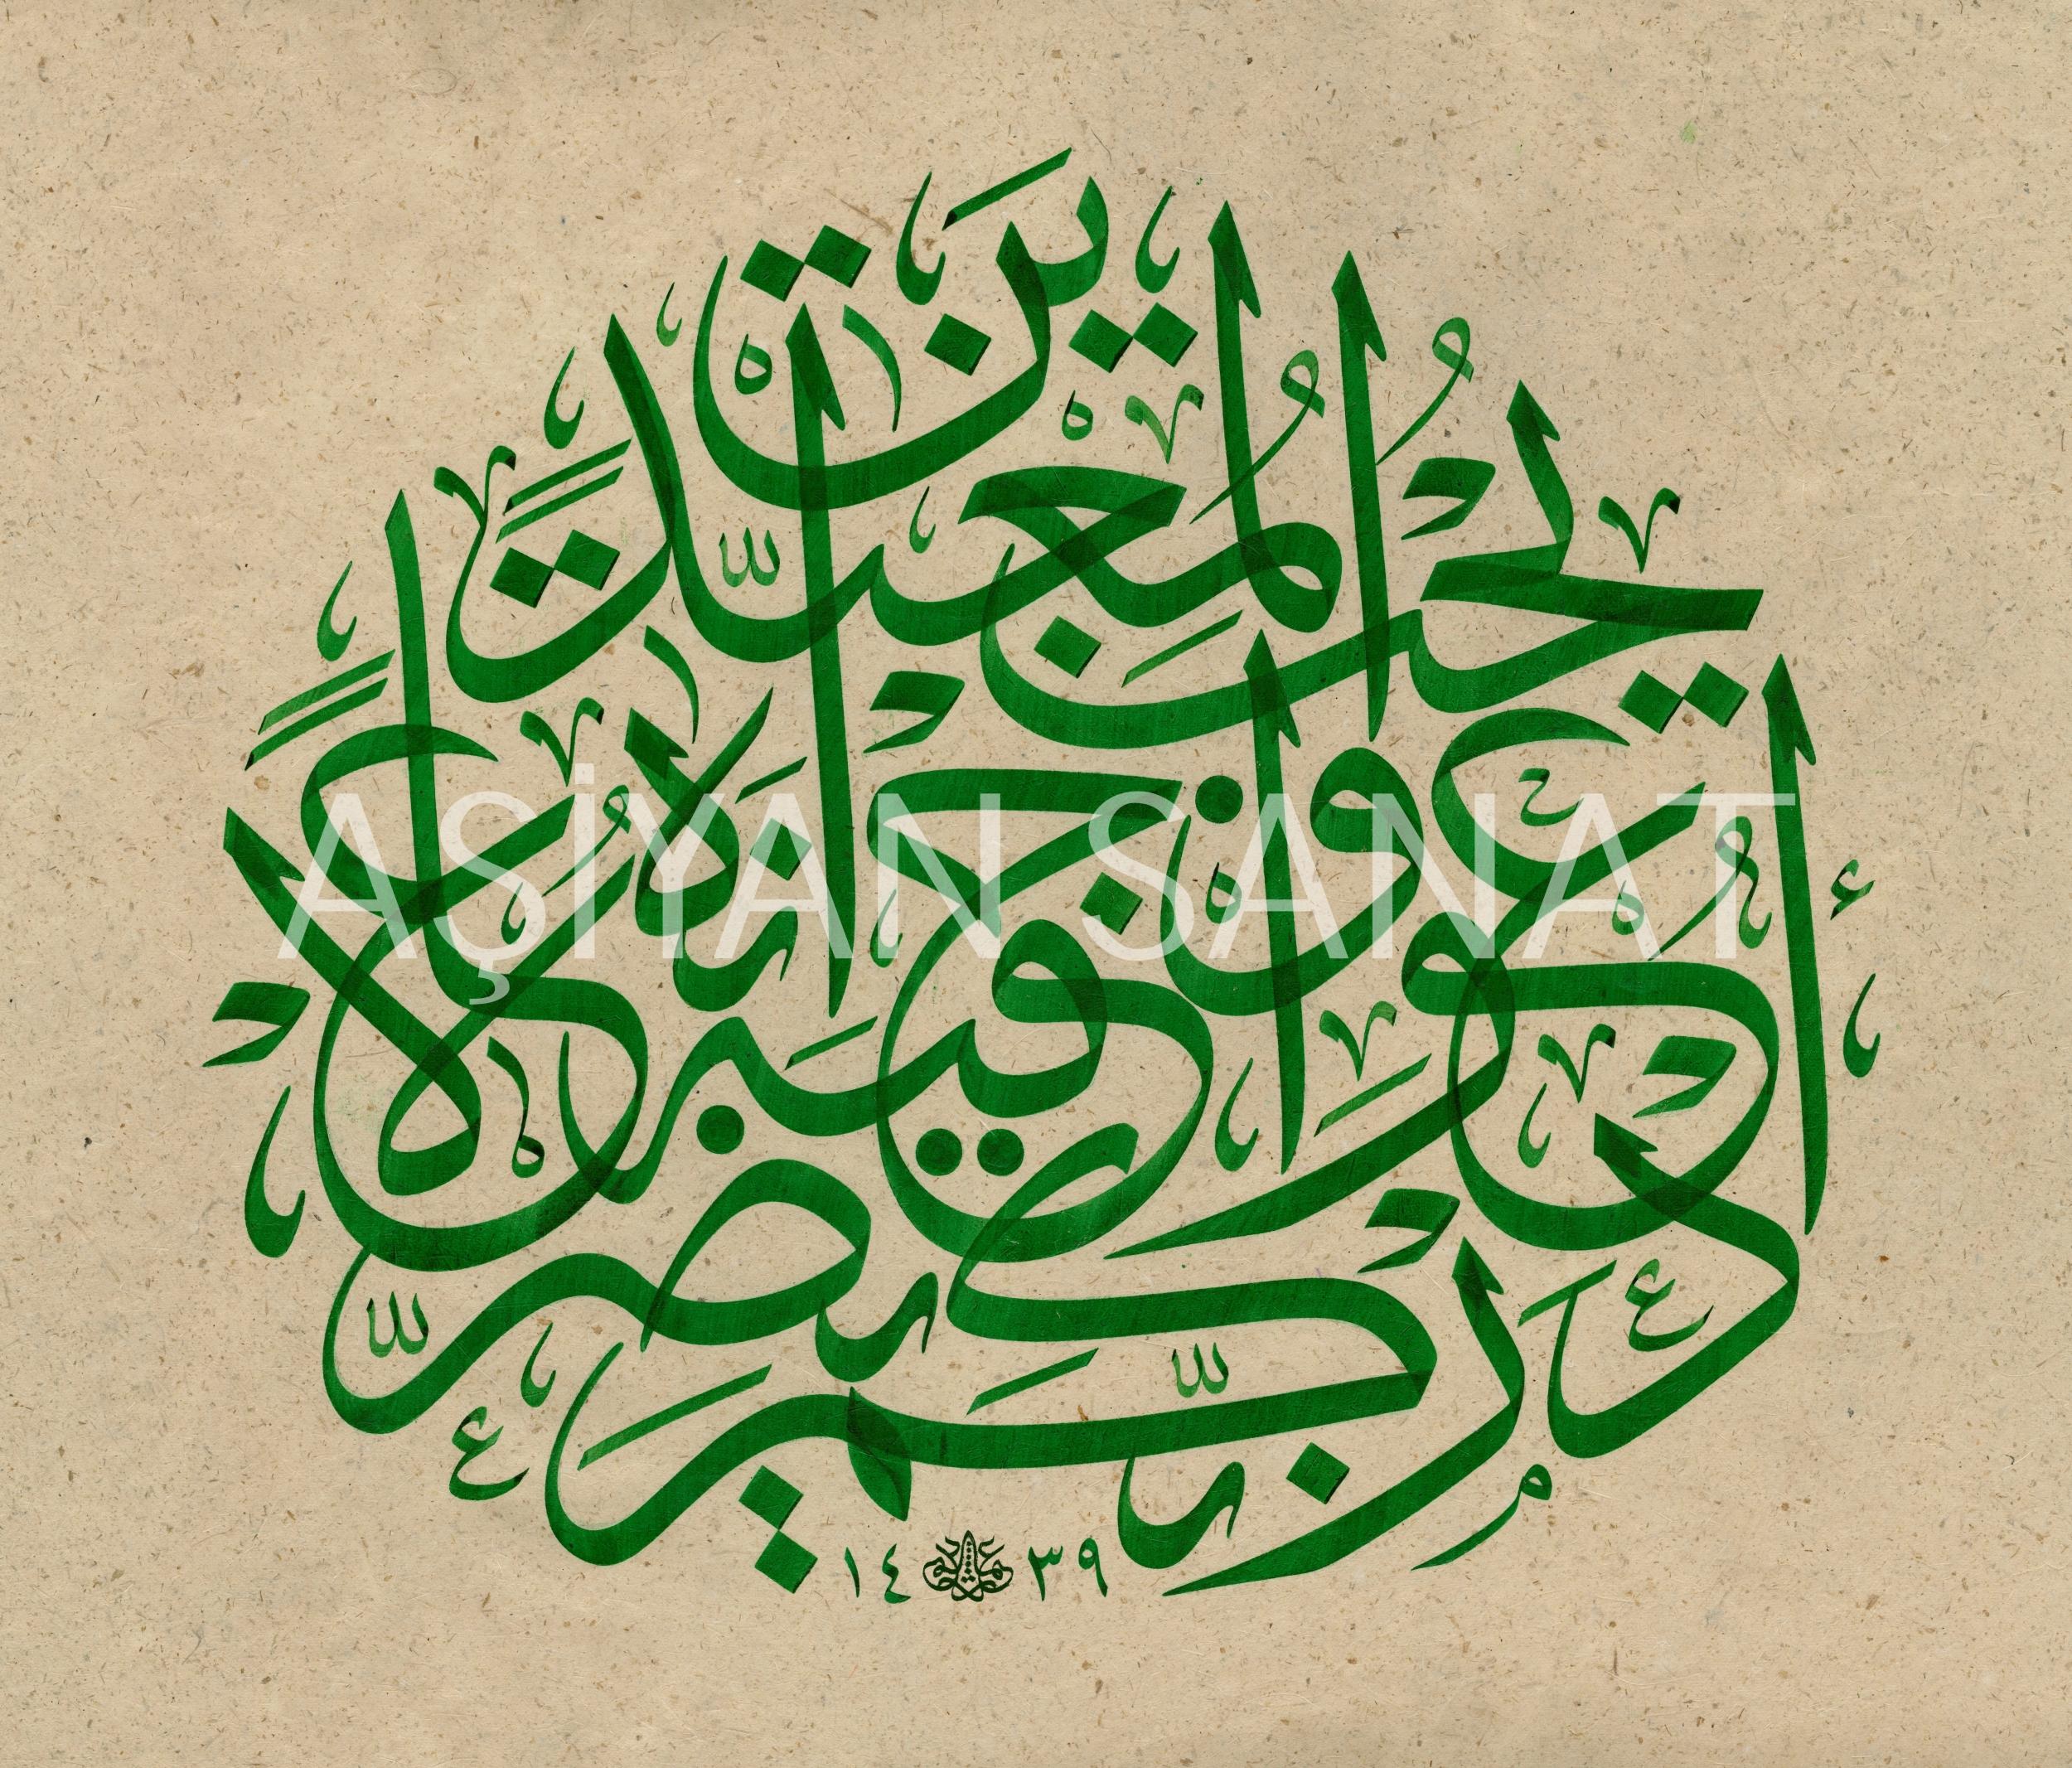 ادْعُوا رَبَّكُمْ تَضَرُّعًا وَخُفْيَةً إِنَّهُ لَا يُحِبُّ الْمُعْتَدِينَ
AŞİYAN SANAT
١٤٣٩